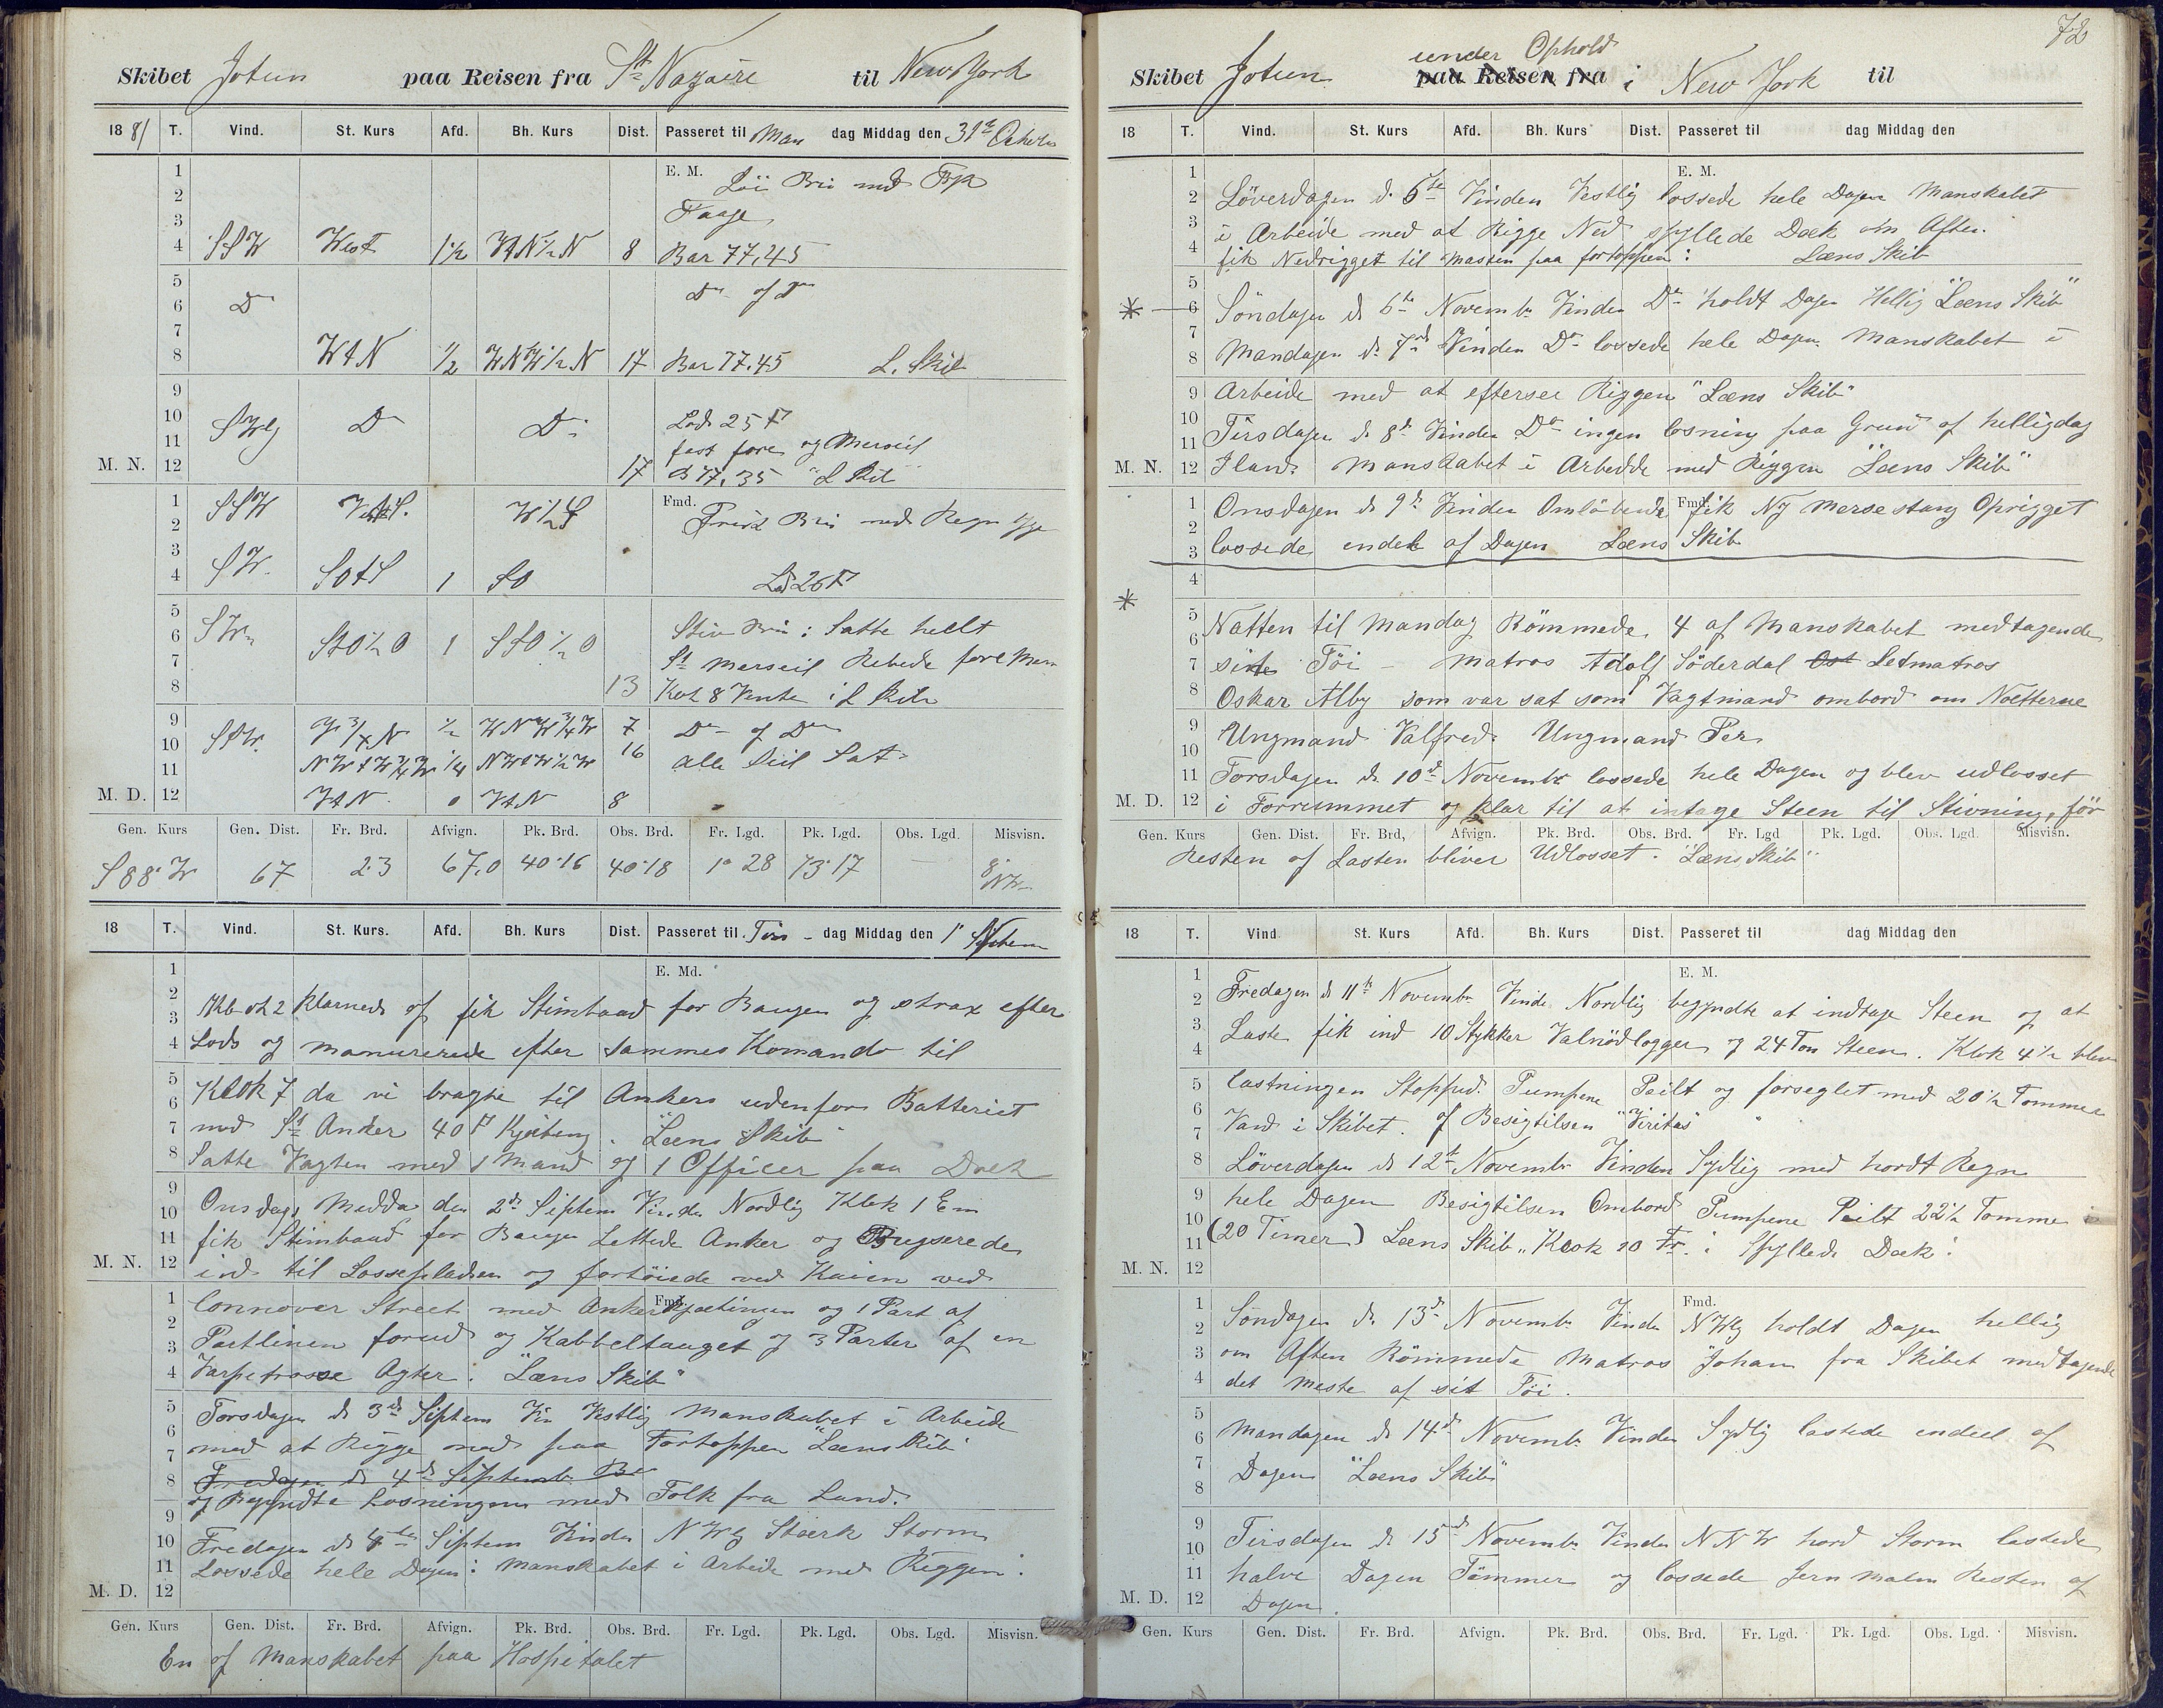 Skibet Jotun paa Reisen fra St Nazaire til New York
1881 T. Vind. St. Kurs Afd. Bh. Kurs Dist. Passeret til Man dag Middag den 31te
1 E. M. Löi Bris med
2 Taage
3
4 SSW West 1½ WtN½N 8 Bar 77,45
5
6 Do Do og Do
7
8 WtN ½ WNW½N 17 Bar 77.45 L. Skib
9
10 SWlg Do Do Lod 25 F
11 fast fore og Merseil
M. N. 12 17 B 77,35 "L Skib"
1 SSW W½S Fmd. Frisk Bris med Regn
2
3 SW
4 SOtS 1 SO Lod 26 F
5
6 SW StO½O 1 SSO½O Stiv Bris: Satte helt
7 St Merseil Rebede fore Mers
8 13 Kl 8 Vendte L Skib
9 ¾N ½ WNW¾W 7 Do og Do
10 SSW. NWtW¾W ¼ NWtW½W 16 alle Seil Sat
11
M. D. 12 WtN 0 WtN 8
Gen. Kurs Gen. Dist. Fr. Brd. Afvign. Pk. Brd. Obs. Brd. Fr. Lgd. Pk. Lgd. Obs. Lgd. Misvisn.
S 88° W 67 2.3 67,0 40°16 40°18 1° 28 73°17 8° NW
18 T. Vind. St. Kurs. Afd. Bh. Kurs Dist. Passeret til Tirs - dag Middag den 1ste
E. Md.
2 klarnede af fik Stimbaad for Baugen og strax efter
Lods og manurerede efter sammes Komando til
Klok 7 da vi bragte til Ankers udenfor Batteriet
med St Anker 40 F Kjetting. "Læns Skib"
Satte Vagten med 1 Mand og 1 Officer paa Dæk
Onsdags Midda den 2de Septem Vinden Nordlig Klok 1 Em
fik Stimbaad for Baugen Lettede Anker og Bugserede
ind til Lossepladsen og fortöiede ved Kaien ved
Connover Street med Anker Kjættingen og 1 Part af
Pertlinen forud og Kabbeltauget og 3 Parter af en
Varpetrosse Agter. "Læns Skib"
Torsdagen d. 3de Septem Vin Vestlig Manskabet i Arbeide
med at Rigge ned paa Fortoppen "Læns Skib"
Fredagen d. 4de Septemb. Be
og Begyndte Losningen med Folk fra Land.
Fredagen d. 4de Septem Vinden NWlg Stærk Storm
Lossede hele Dagen: Manskabet i Arbeide med Riggen.
Gen. Kurs Gen. Dist. Fr. Brd. Afvign. Pk. Brd. Obs. Brd. Fr. Lgd. Pk. Lgd. Obs. Lgd. Misvisn.
En af Manskabet paa Hospitalet
72
under Ophold
Skibet Jotun paa Reisen fra i New York til
18 T. Vind. St. Kurs Afd. Bh. Kurs Dist. Passeret til dag Middag den
E. M.
Löverdagen d. 5te Vinden Vestlig lossede hele Dagen Manskabet
i Arbeide med at Rigge Ned spyllede Dæk om Aften.
fik Nedrigget til Masten paa fortoppen: Læns Skib
* Söndagen d 6te Novemb. Vinden Do holdt Dagen Hellig "Læns Skib"
Mandagen d. 7de Vinden Do lossede hele Dagen Manskabet i
Arbeide med at eftersee Riggen "Læns Skib"
Tirsdagen d. 8de Vinden Do ingen losning paa Grund af helligdag
Iland. Manskabet i Arbedde med Riggen "Læns Skib"
Onsdagen d 9de Vinden Omlöbende Fmd. fik Ny Mersestang Oprigget
lossede endel af Dagen Læns Skib
*
Natten til Mandag Römmede 4 af Manskabet medtagende
sine Töi - Matros Adolf Söderdal Ost Letmatros
Oskar Alby som var sat som Vagtmand ombord om Nætterne
Ungmand Valfred. Ungmand Per
Torsdagen d. 10de Novembr lossede hele Dagen og blev udlosset
i Forrummet og klar til at intage Steen til Stivning, för
Gen. Kurs Gen. Dist. Fr. Brd, Afvign. Pk. Brd. Obs. Brd. Fr. Lgd Pk. Lgd. Obs. Lgd. Misvisn.
Resten af Lasten bliver Udlosset. "Læns Skib"
18 T. Vind St. Kurs Afd. Bh. Kurs Dist. Passeret til dag Middag den
E. M.
Fredagen d 11te Novembr Vinde Nordlig begyndte at indtage Steen og at
Laste fik ind 10 Stykker Valnödlogger og 24 Ton Steen. Klok 4½ blev
lastningen Stoppet. Pumpene Peilt og forseglet med 20½ Tommer
Vand i Skibet. af Besigtilsen "Viritas"
Löverdagen d 12te Novembr Vinden Sydlig med hordt Regn
hele Dagen Besigtilsen Ombord Pumpene Peilt 22½ Tomme i
(20 Timer) Læns Skib" Klok 10 Fr. i Spyllede Dæk.
Fmd.
Söndagen d. 13de Novembr Vinden NWlg holdt Dagen hellig
om Aften Römmede Matros Johan fra Skibet medtagende
det meste af sit Töi.
Mandagen d 14de Novembr Vinden Sydlig lastede endeel af
Dagen "Læns Skib"
Tirsdagen d 15de Novembr Vinden NNW hord Storm lastede
halve Dagen Tömmer og lossede Jern Malm Resten af
Dagen.
Gen. Kurs Gen. Dist. Fr. Brd. Afvign. Pk. Brd. Obs. Brd. Fr. Lgd. Pk. Lgd. Obs. Lgd. Misvisn.